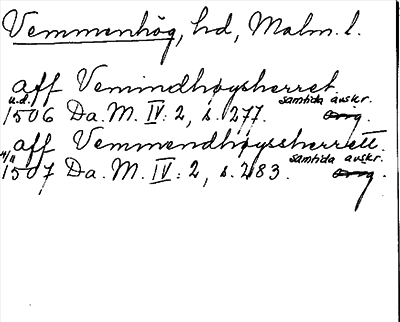 Vemmenhög, hd, Malm. l.
aff Vemindhøysherret
u.d. samtida avskr.
1506 Da. M. IV: 2, s. 277. orig.
aff Vemmendhøyssherrett.
4/11 samtida avskr.
1507 Da. M. IV: 2, s. 283. orig.